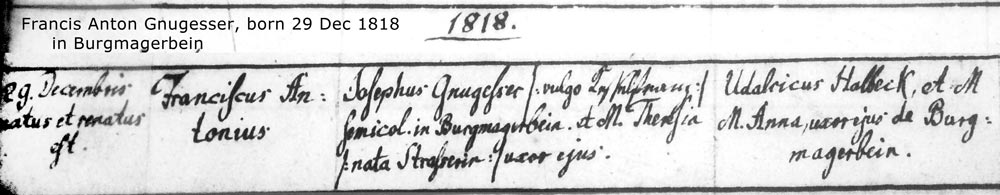 Francis Anton Gnugesser, born 29 Dec 1818
in Burgmagerbein
1818.
29. Decembris
natus et renatus
est.
Franciscus An:
tonius
Josephus Gnugesser /: vulgo
semicol. in Burgmagerbein. et M. Theresia
/: nata Strasserin :/ uxor ejus.
Udalricus Halbeck, et M
M. Anna, uxor ejus de Burg:
magerbein.